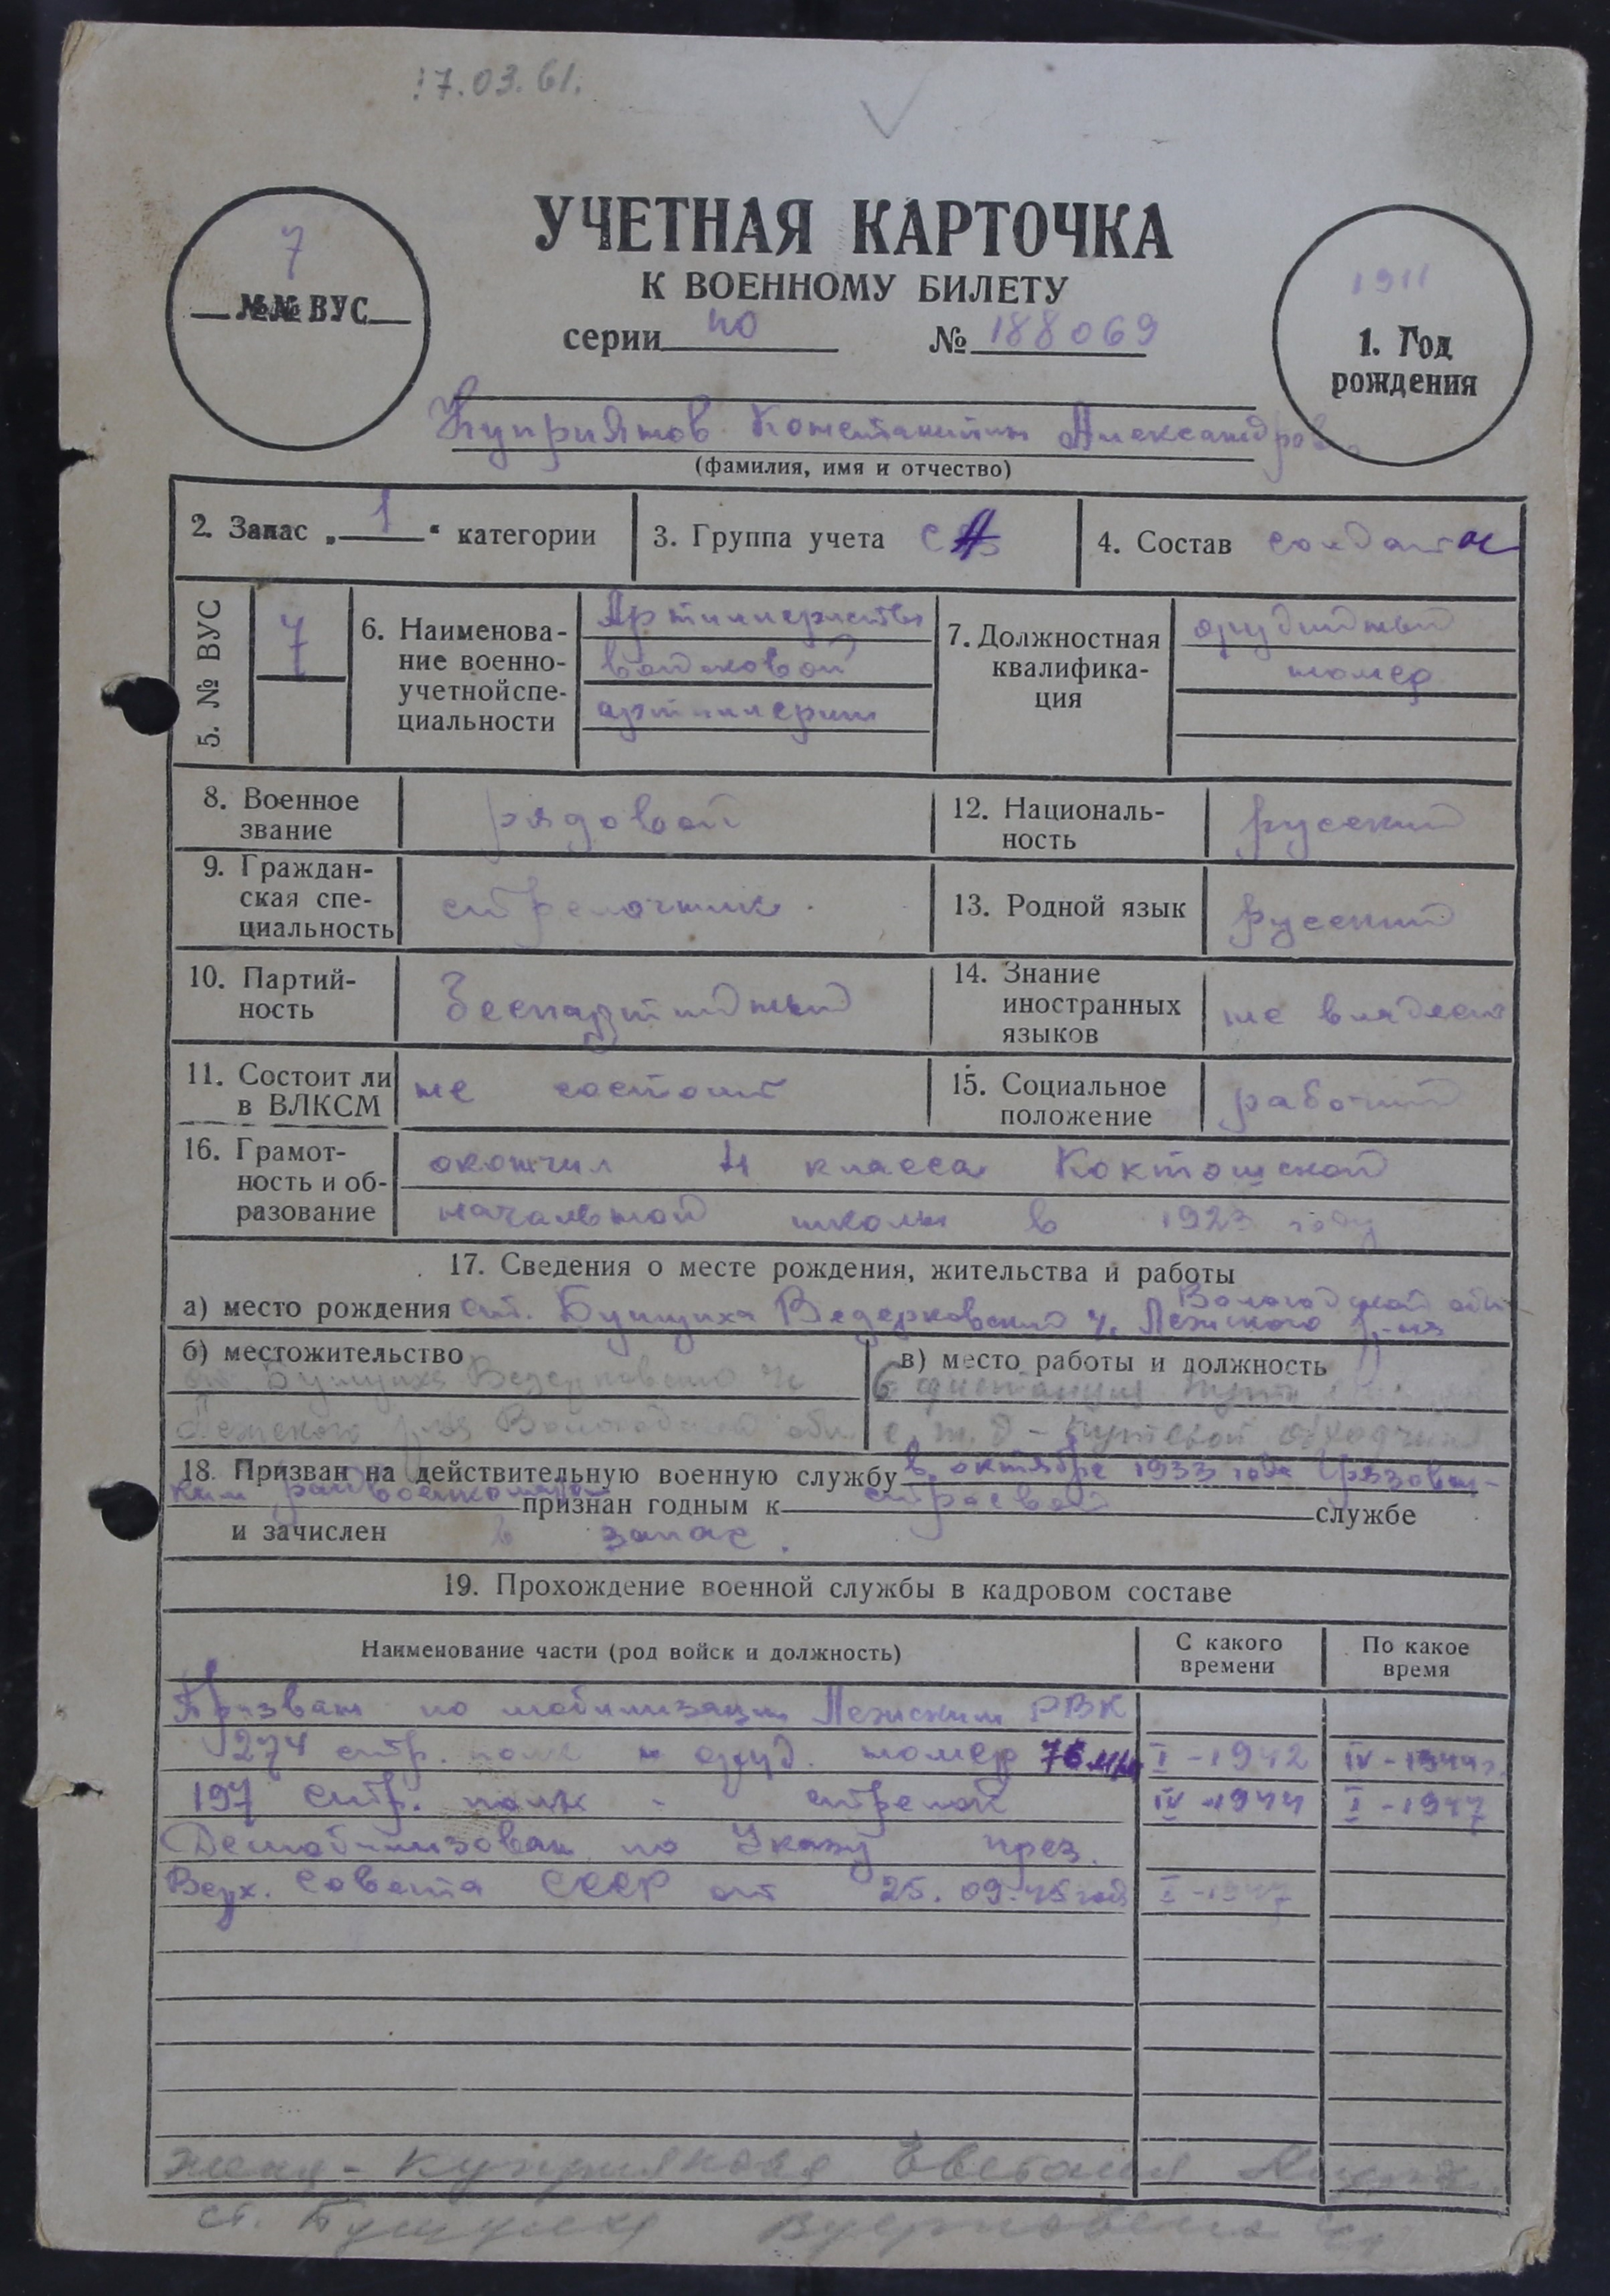 17.03.61.
УЧЕТНАЯ КАРТОЧКА
К ВОЕННОМУ БИЛЕТУ
серии ПО № 188069
7
№№ ВУС
1911
1. Год
рождения
Куприянов Константин Александров
(фамилия, имя и отчество)
2. Запас „1“ категории
3. Группа учета СА
4. Состав солдаты
5. № ВУС
7
6. Наименова-
ние военно-
учетной спе-
циальности
Артиллеристы
войсковой
артиллерии
7. Должностная
квалифика-
ция
орудийный
номер
8. Военное
звание
рядовой
12. Националь-
ность
русский
9. Граждан-
ская спе-
циальность
стрелочник
13. Родной язык
русский
10. Партий-
ность
беспартийный
14. Знание
иностранных
языков
не владеет
11. Состоит ли
в ВЛКСМ
не состоит
15. Социальное
положение
рабочий
16. Грамот-
ность и об-
разование
окончил 4 класса Коктошской
начальной школы в 1923 году
17. Сведения о месте рождения, жительства и работы
Вологодской обл
а) место рождения ст. Бушуиха Ведерковский Лежского р-на
б) местожительство
ст. Бушуиха Ведерковского
Лежского р-на Вологодской обл
в) место работы и должность
6 дистанция пути
с. ж. д - путевой обходчик
18. Призван на действительную военную службу в октябре 1933 года Грязовец-
ким райвоенкоматом признан годным к строевой службе
и зачислен в запас.
19. Прохождение военной службы в кадровом составе
Наименование части (род войск и должность)
С какого
времени
По какое
время
Призван по мобилизации Лежским РВК
1274 стр. полк - оруд. номер 76 мм I - 1942 IV - 1944 г.
197 стр. полк - стрелок IV - 1944 I - 1947
Демобилизован по Указу през.
Верх. Совета СССР от 25.09.45 год I - 1947
жена - Куприянова
ст. Бушуиха